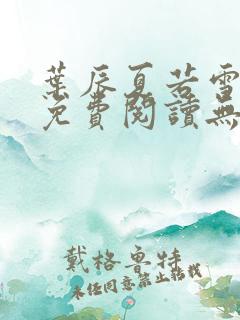 葉辰夏若雪
免費閱讀無
戴格魯特
未经同意禁止转载